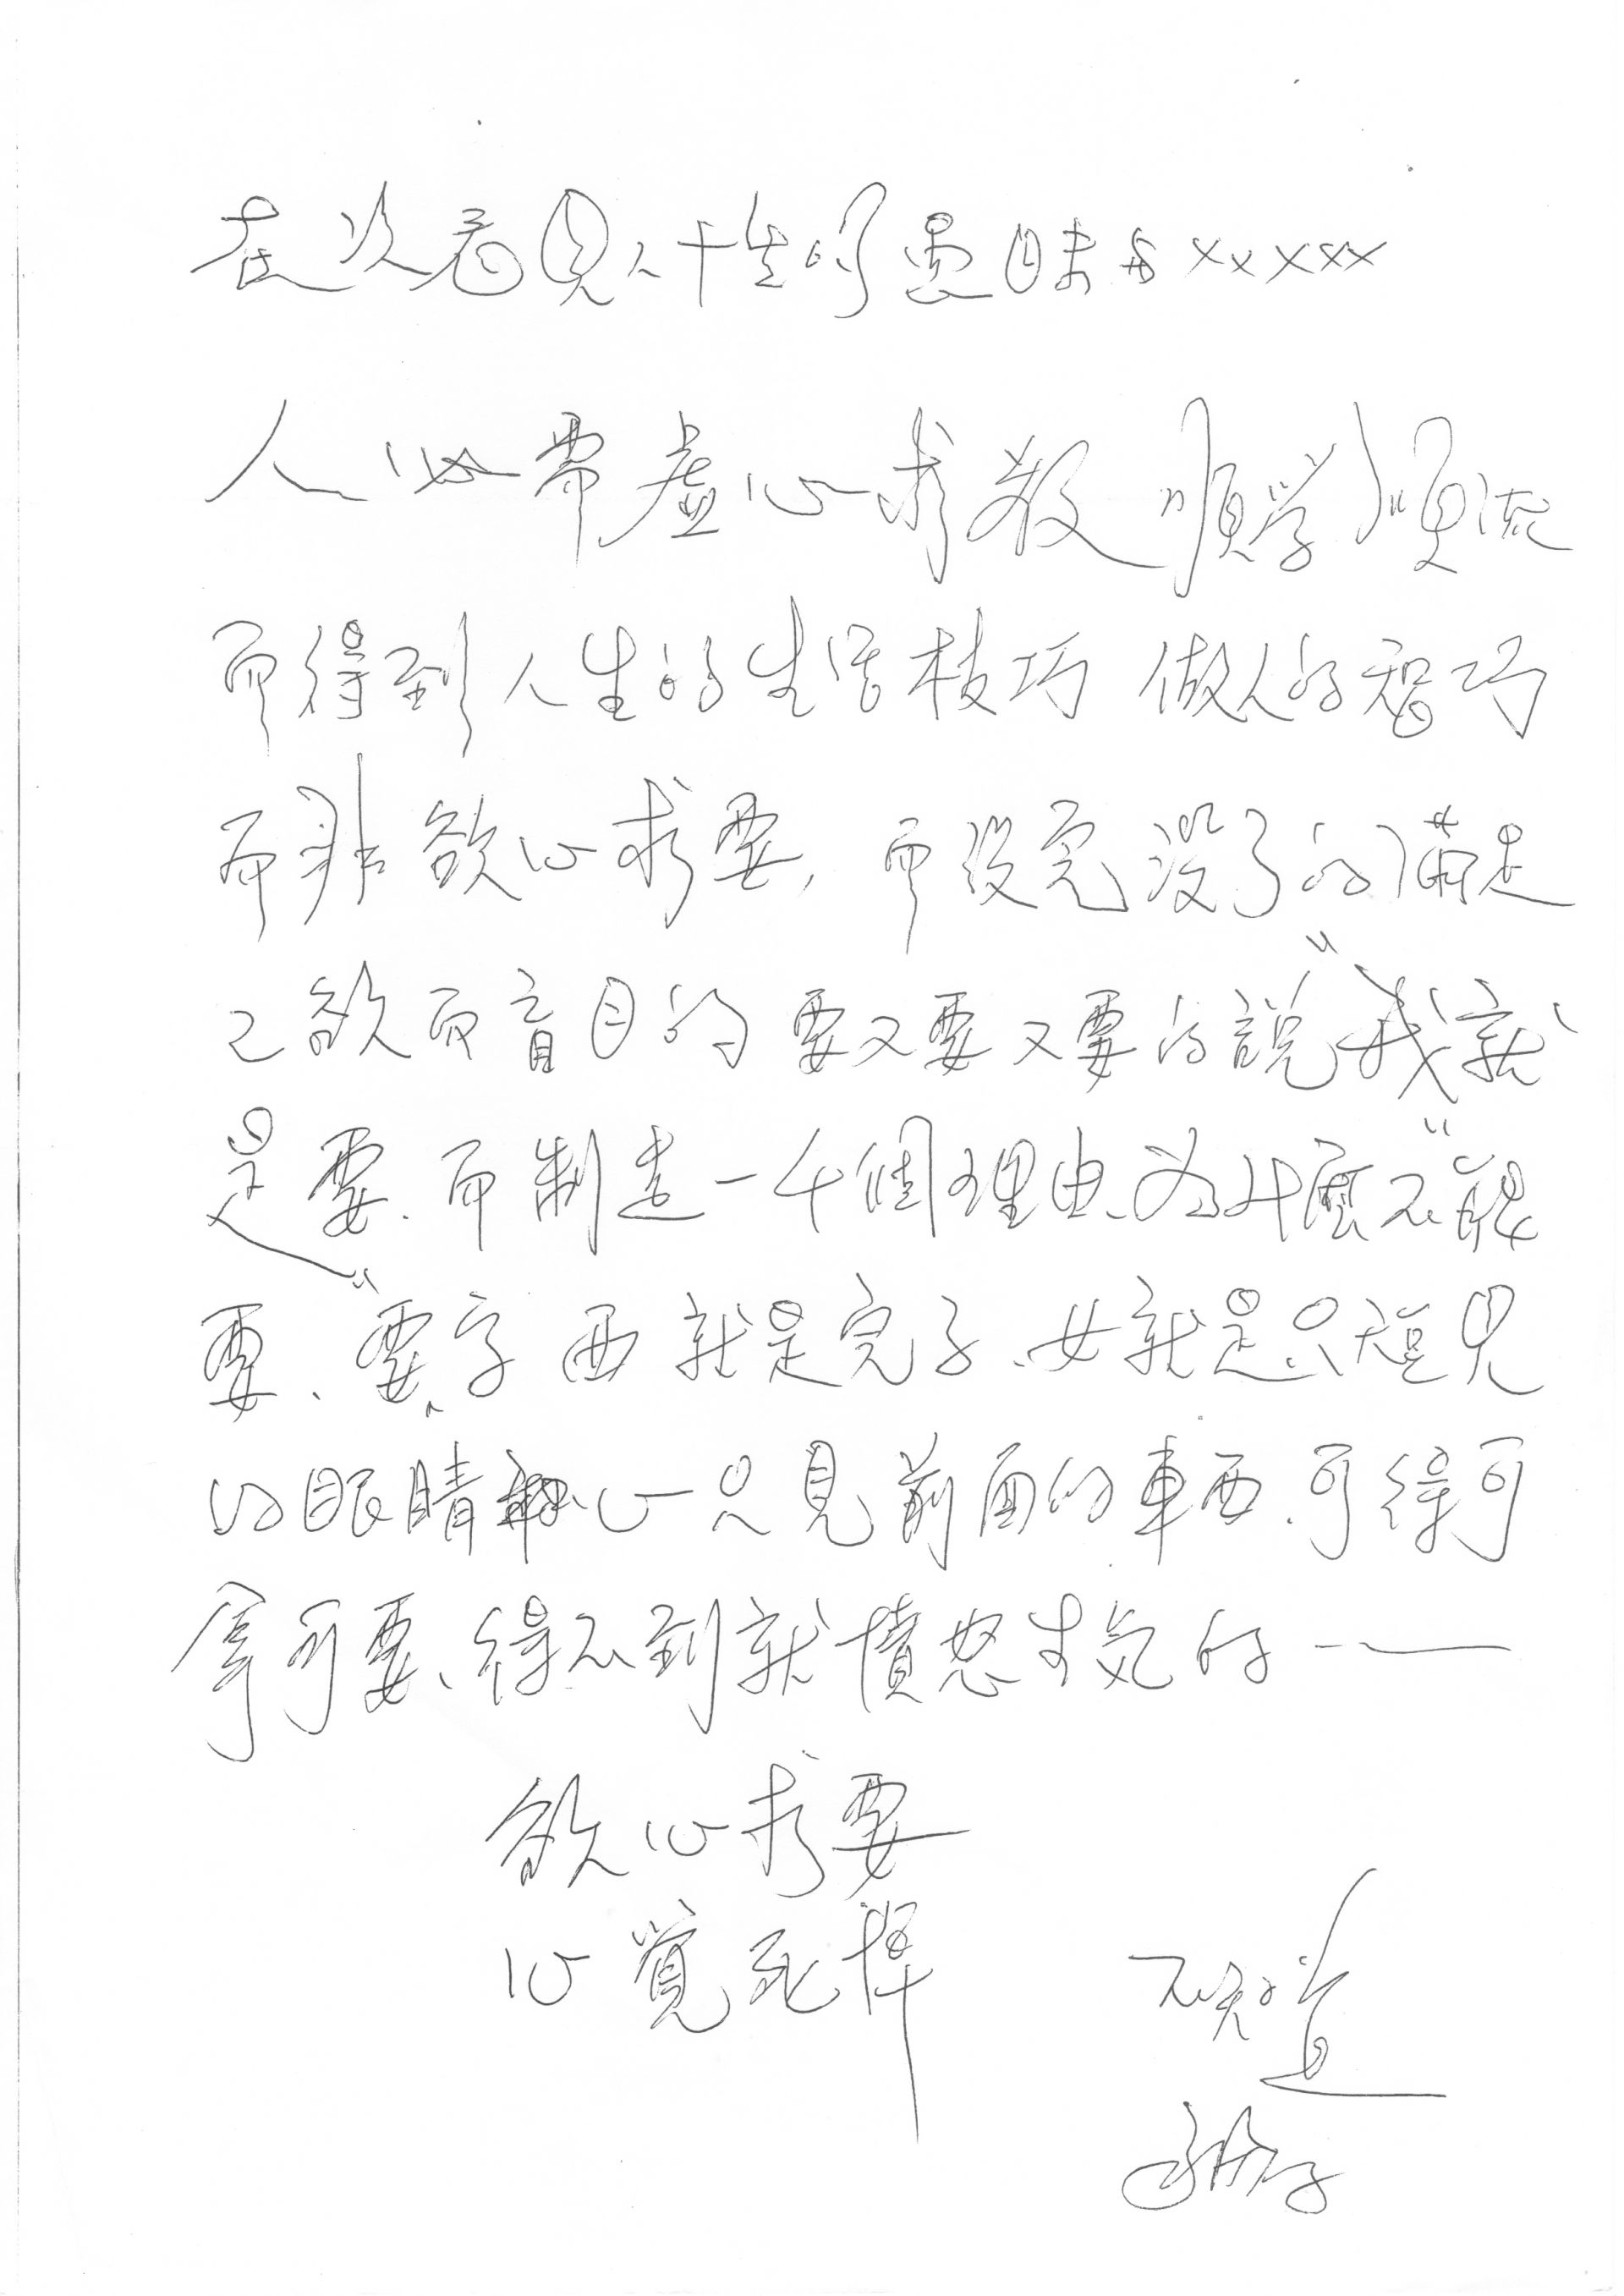 在次看見人性的愚昧与xxxxxx
人必需虛心求教 順學順流
而得到人生的生活技巧 做人的智巧
而非欲心求要,而没完没了的满足
己欲而盲目的要又要又要的說"我就
是要"而制造一千個理由、为什麼不"能
要、"要"字 西就是完了、女就是只短見
的眼睛和心只見前面的東西.可得可
拿可要、得不到就憤怒才気的——
欲心求要
心覺死掉
不知道